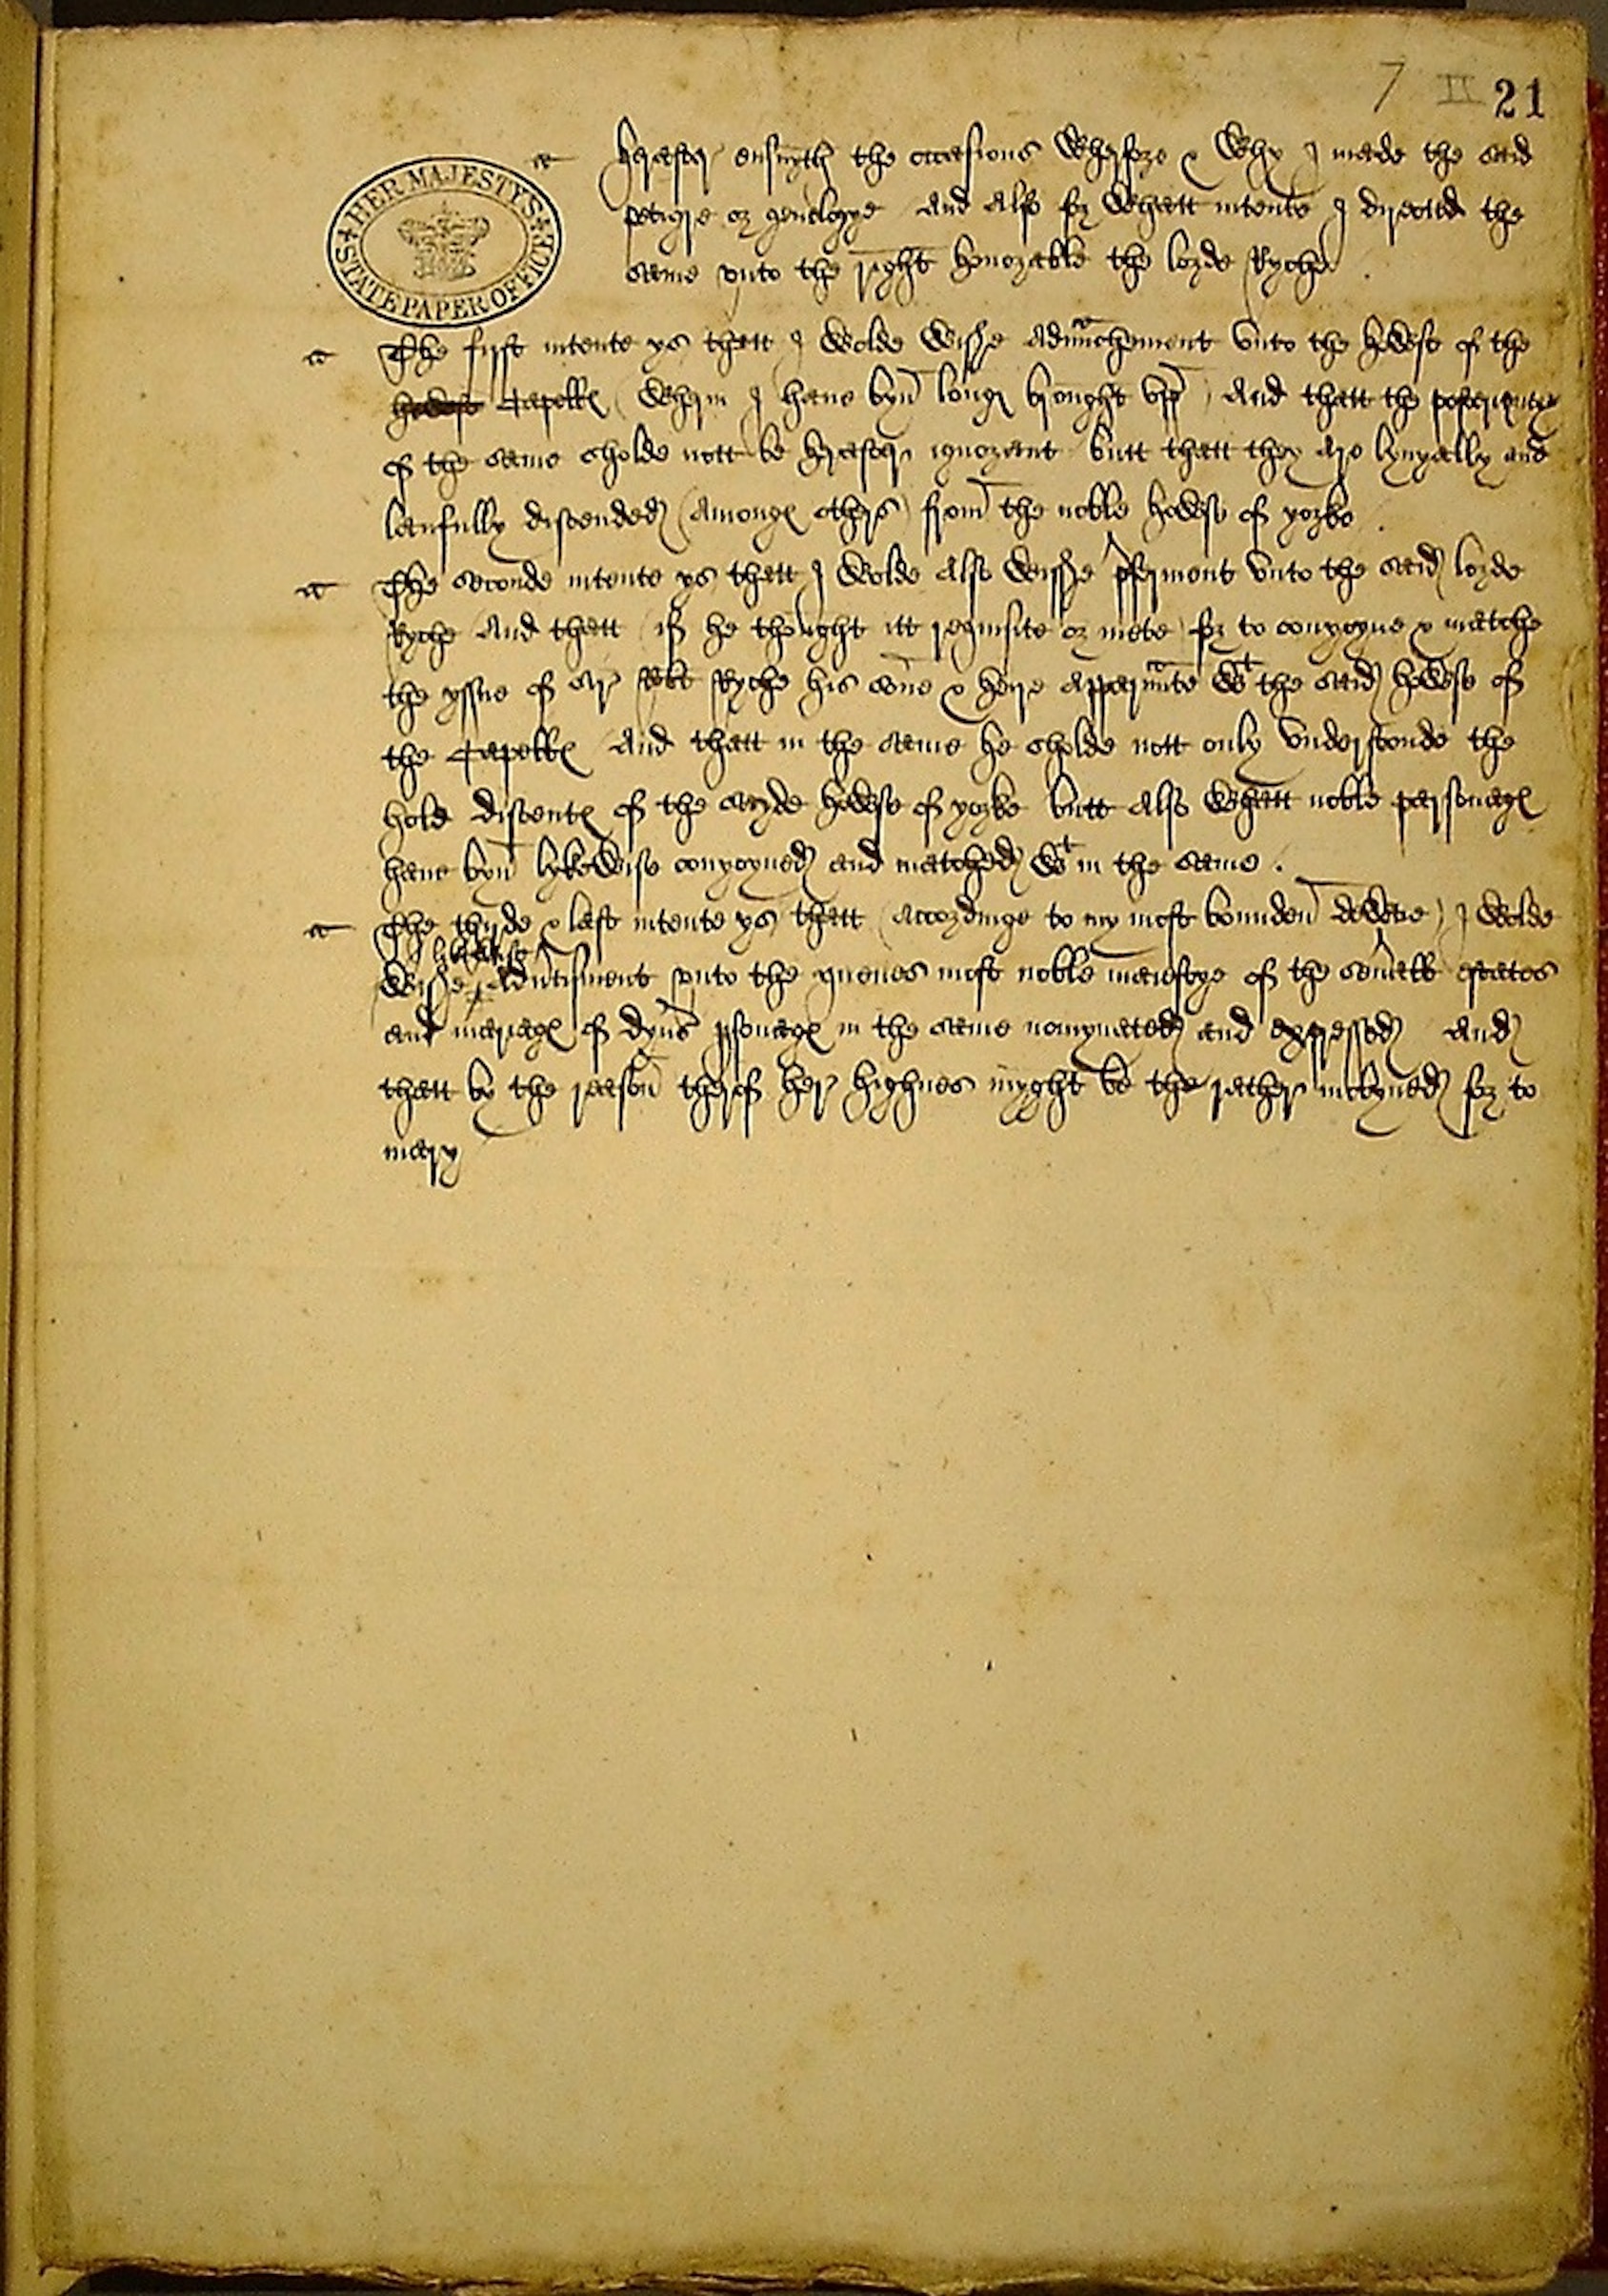 7 II 21
HER MAJESTY'S STATE PAPER OFFICE
Hereafter ensuyth the occasions Wherfore & Why I made the said
petigre or genelogye And Also for Whatt intente I directid the
same vnto the right honorable the lorde Ryche
The first intente ys thatt I Wolde Wishe Aduanchement vnto the howse of the
howse Capelle Wherin I haue byn longe brought vpp And thatt the posterytye
of the same sholde nott be hereafter ignorant butt thatt they Are lynyally and
laufully discended (Amonge others) from the noble howse of yorke
The seconde intente ys thatt I Wolde Also Wisshe pferment vnto the said lorde
Ryche And thatt if he thought itt requisite or mete for to conyoyne & matche
the yssue of Sr Robt Ryche his sone & heyre Apparante Wt the said howse of
the Capelle And thatt in the same he sholde nott only vnderstonde the
hold discente of the sayde howse of yorke butt Also Whatt noble parsonage
haue byn lykewise conyoyned and matched Wt in the same .
The thyrde & last intente ys thatt (Accordinge to my most bounden dewtie) I Wolde
lykewise
Wishe Aduertisment vnto the quenes most noble maiestye of the seuerall estates
and mariage of dyuers psonage in the same nomynated and expressed And
thatt by the reason therof her highnes myght be the rather inclyned for to
mary